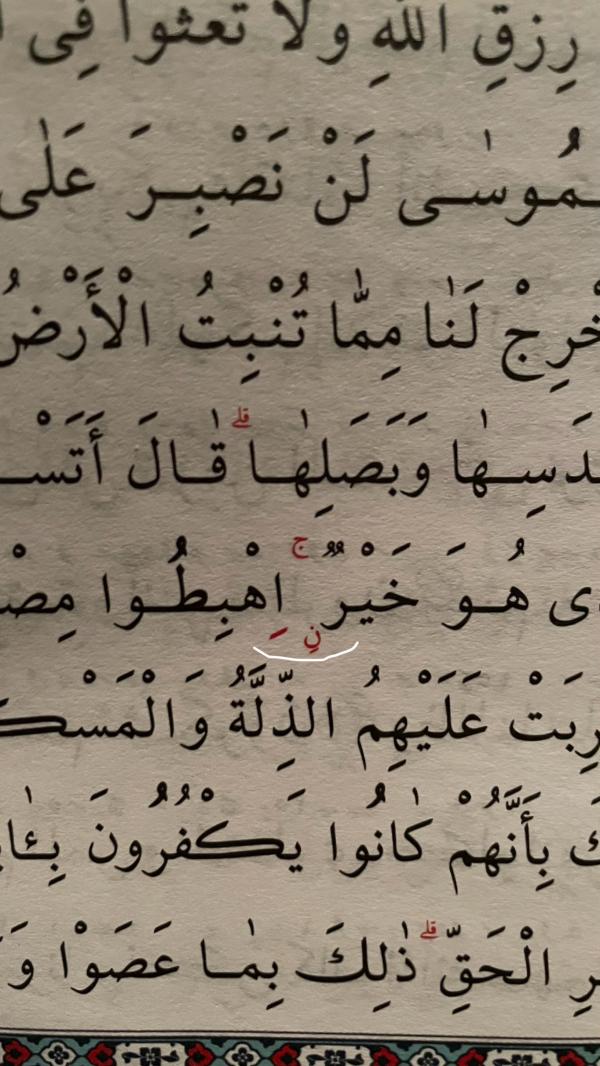 رِزقِ اللهِ ولا تَعثَوا فِی
ـمُوسىٰ لَنْ نَصْبِـرَ عَلىٰ
ـخْرِجْ لَنٰا مِمّٰا تُنْبِتُ الْأَرْضُ
ـدَسِـهٰا وَبَصَلِهٰـا ۗ قٰـالَ أَتَسْـ
ـى هُـوَ خَيْرٌ ۚ نِ اِهْبِطُـوا مِصْـ
ـرِبَتْ عَلَيْهِمُ الذِّلَّةُ وَالْمَسْكَـ
ـكَ بِأَنَّهُمْ كٰانُوا يَكْفُرُونَ بِـٔايٰـ
ـرِ الْحَقِّ ۗ ذٰلِكَ بِمٰـا عَصَوْا وَ